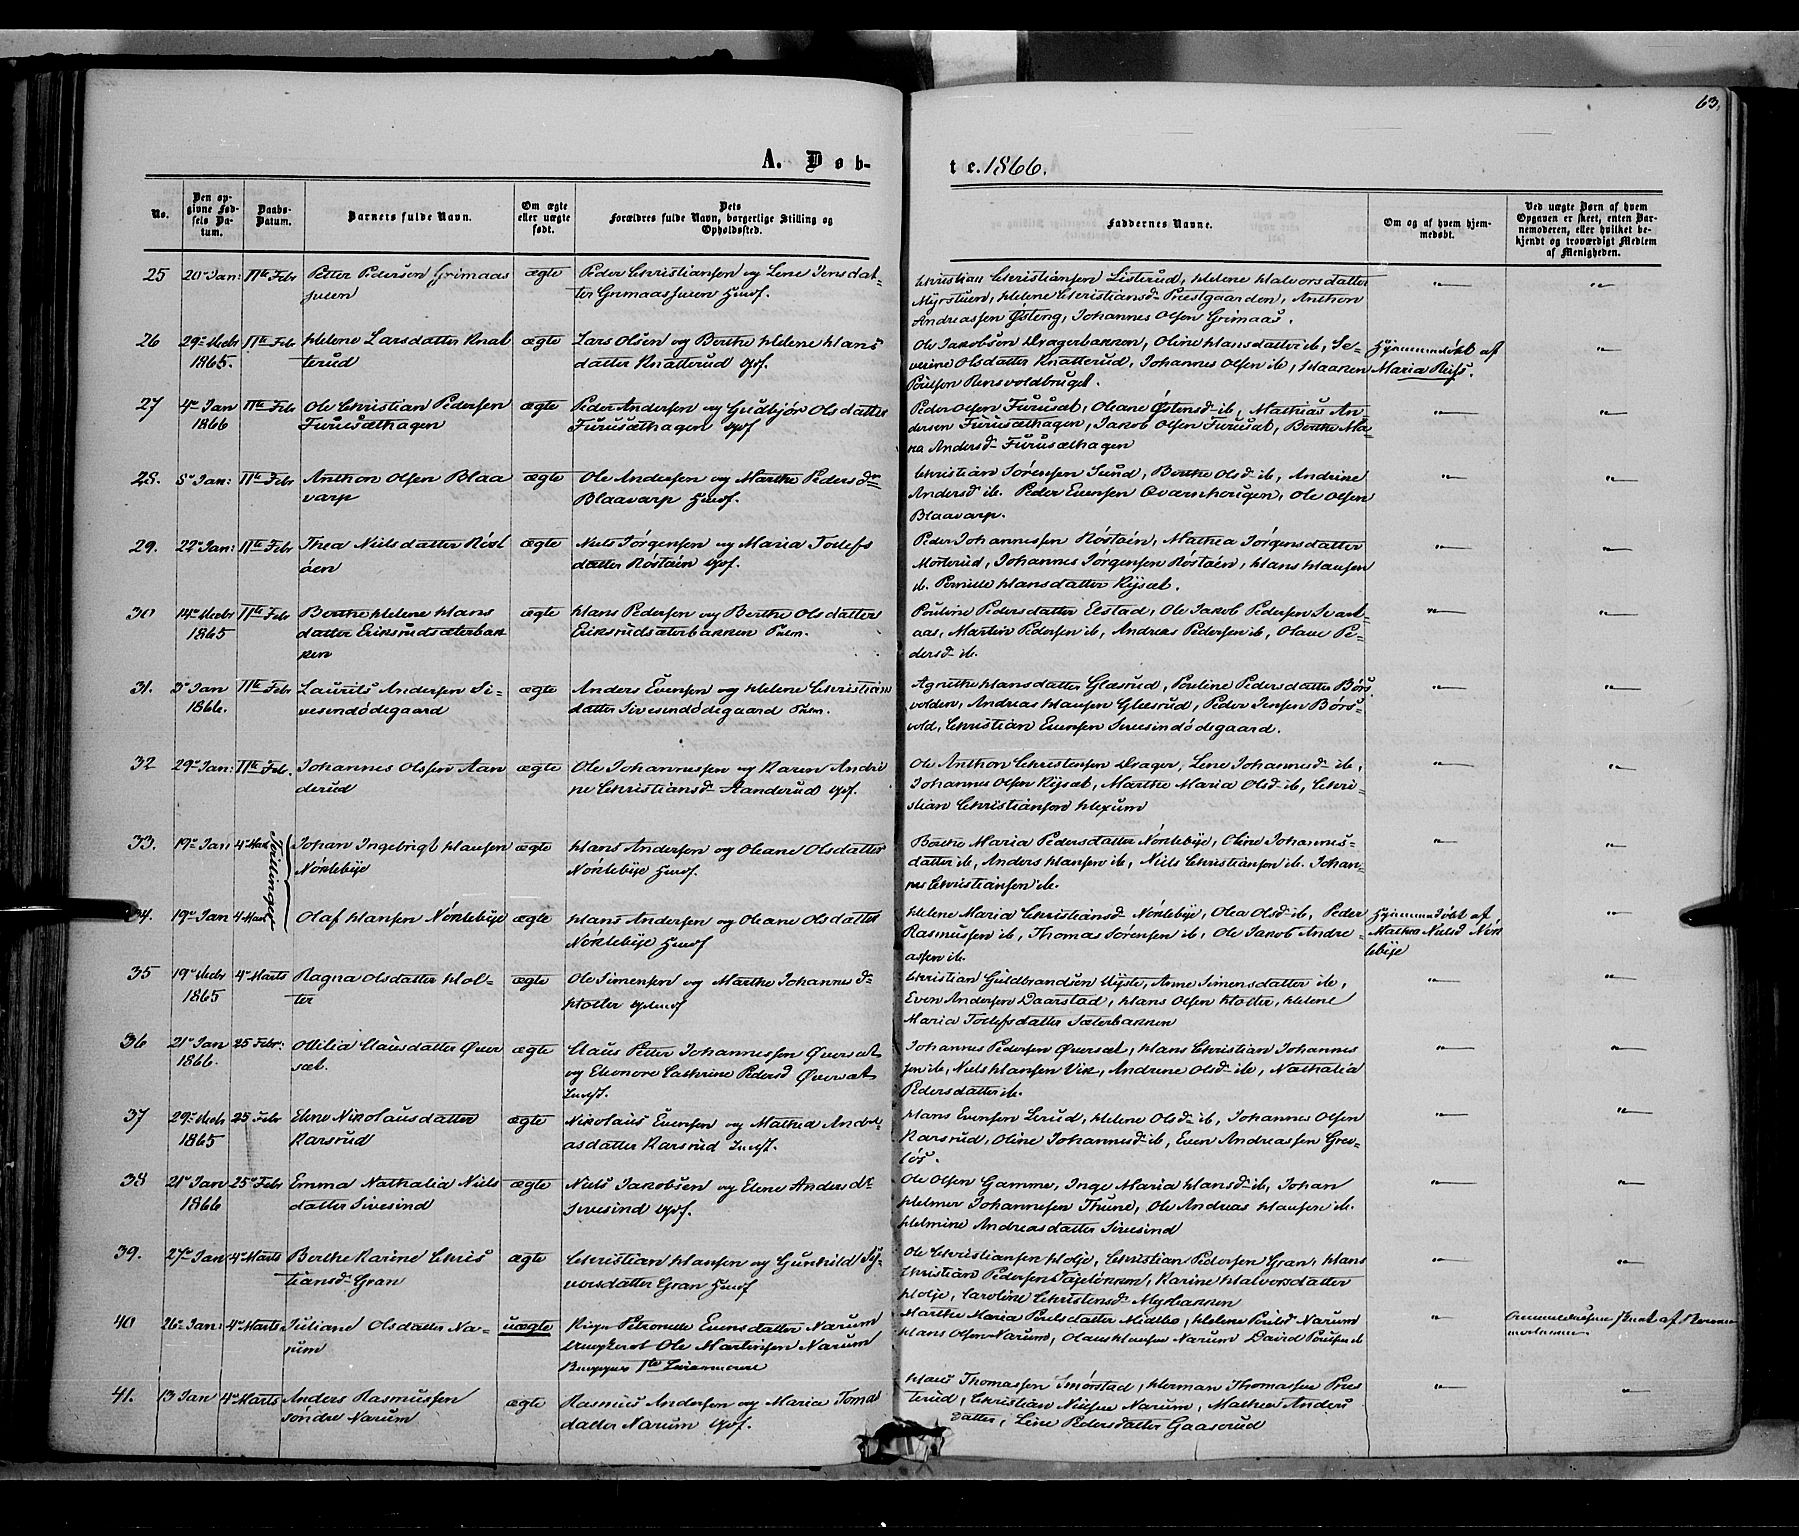 63.
A. Døb-
te. 1866.
No.
Den opgivne Fødsels Datum.
Daabs-Datum.
Barnets fulde Navn.
Om ægte eller uægte født.
Dets Forældres fulde Navn, borgerlige Stilling og Opholdssted.
Faddernes Navne.
Om og af hvem hjemmedøbt.
Ved uægte Børn af hvem Opgaven er skeet, enten Barnemoderen, eller hvilket bekjendt og troværdigt Medlem af Menigheden.
25 20de Jan: 11te Febr Petter Pedersen Grimaas ægte Peder Christiansen og Lene Jensdat-
ter Grimaas Huusf.
Christian Christiansen Listerud, Helene Halvorsdatter
Myrstuen, Helene Christiansd- Præstgaarden, Anthon
Andreassen Østeng, Johannes Olsen Grimaas.
26 29de 1865. 11te Febr Helene Larsdatter Knat
terud ægte Lars Olsen og Berthe Helene Hans
datter Knatterud
Ole Jakobsen Dragerbakken, Oline Hansdatter ib, Se-
verine Olsdatter Knatterud, Johannes Olsen ib, Haaken
Poulsen Rensvoldbruget.
Hjemmedøbt af
Maria Reiss.
27 4de Jan 1866 11te Febr Ole Christian Pedersen
Furusæthagen ægte Peder Andersen og Gudbjør Olsdatter
Furusæthagen
Peder Olsen Furusæt, Oleane Østensd- ib, Mathias An
dersen Furusæthagen, Jakob Olsen Furusæt, Berthe Ma-
Andersd- Furusæthagen
28. 8de Jan: 11te Febr Anthon Olsen Blaa
varp ægte Ole Andersen og Marthe Pedersd-
Blaavarp Huusf.
Christian Sørensen Sund, Berthe Olsd- ib, Andrine
Andersd- ib. Peder Evensen Qvarnhougen, Ole Olsen
Blaavarp.
29. 22de Jan: 11te Febr Thea Nielsdatter Røst
øen ægte Niels Jørgensen og Maria Tollefs
datter Røstøen
Peder Johannessen Røstøen, Mathea Jørgensdatter
Morterud, Johannes Jørgensen Røstøen, Hans Hansen
ib. Pernille Hansdatter Rysæt.
30 14de 1865 11te Febr Berthe Helene Hans
datter Eriksrudsæterbak
ken ægte Hans Pedersen og Berthe Olsdatter
Eriksrudsæterbakken
Pouline Pedersdatter Elstad, Ole Jakob Pedersen Svart
aas, Martin Pedersen ib, Andreas Pedersen ib, Olave Pe-
dersd- ib.
31. 3de Jan 1866. 11te Febr Laurits Andersen Si-
vesindødegaard ægte Anders Evensen og Helene Christians
datter Sivesindødegaard
Agnethe Hansdatter Glæsrud, Pouline Pedersdatter Børs
volden, Andreas Hansen Glæsrud, Peder Jensen Børs-
vold, Christian Evensen Sivesindødegaard.
32 29de Jan: 11te Feb. Johannes Olssen Aan
derud ægte Ole Johannessen og Karen Andri
ne Christiansd- Aanderud
Ole Anthon Christensen Drager, Lene Johannesd- ib,
Johannes Olsen Rysæt, Marthe Maria Olsd- ib, Chri-
stian Christiansen Hexum
33. 19de Jan 4de Marts Tvillinger Johan Ingebrigt Hansen
Nøklebye ægte Hans Andersen og Oleane Olsdatter
Nøklebye Huusf.
Berthe Maria Pedersdatter Nøklebye, Oline Johannes-
datter ib, Anders Hansen ib, Niels Christiansen ib. Johan-
nes Christiansen ib.
34. 19de Jan 4 Marts Olaf Hansen Nøklebye ægte Hans Andersen og Oleane Olsdatter
Nøklebye Huusf
Helene Maria Christiansd- Nøklebye, Olea Olsd- ib, Peder
Rasmussen ib, Thomas Sørensen ib, Ole Jakob Andre-
assen ib.
Hjemmedøbt af
Mathea Nielsd Nøk
lebye
35 19de 1865 4de Marts Ragna Olsdatter Hol-
ter ægte Ole Simensen og Marthe Johannesd-
Holter
Christian Guldbrandsen Myste, Anne Simensdatter ib,
Even Andersen Daarstad, Hans Olsen Holter, Helene
Maria Tollefsdatter Sæterbakken
36 21de Jan 1866. 25 Febr: Ottilia Clausdatter Øver
sæt. ægte Claus Petter Johannessen Øversæt
og Eleonore Cathrine Pedersd Øversæt
Johannes Pedersen Øversæt, Hans Christian Johannes
sen ib, Niels Hansen Vik, Andrine Olsd- ib, Nathalia
Pedersdatter ib.
37 29de 1865 25 Febr Elene Nikolausdatter
Karsrud ægte Nikolaus Evensen og Mathea Andre-
asdatter Karsrud
Hans Evensen Lerud, Helene Olsd- ib, Johannes Olsen
Karsrud, Oline Johannesd- ib, Even Andreassen Gre-
løs.
38 21de Jan 1866 25de Febr Emma Nathalia Niels
datter Sivesind ægte Niels Jakobsen og Elene Andersd-
Sivesind
Ole Olsen Gamme, Inge Maria Hansd- ib, Johan
Helmer Johannesen Thune, Ole Andreas Hansen ib.
Helmine Andreasdatter Sivesind
39. 27de Jan 4de Marts Berthe Karine Chris
tiansd- Gran ægte Christian Hansen og Gunhild Sy-
versdatter Gran Huusf
Ole Christiansen Holje, Christian Pedersen Gran, Hans
Christian Pedersen, Karine Halvorsdatter
Holje, Caroline Christensd- Myrbakken
40 26de Jan: 4de Marts Juliane Olsdatter Na-
rum uægte Pige Petronelle Evensdatter Narum
Ungkarl Ole Martinsen Narum
Begges 1te Leiermaal
Marthe Maria Poulsdatter Midtbø, Helene Poulsd- Narum
Hans Olsen Narum, Olaus Hansen Narum David Poulsen ib
41. 13 Jan 4de Marts Anders Rasmussen
søndre Narum ægte Rasmus Andersen og Maria Tomas
datter Narum
Hans Thomassen Smørstad, Herman Thomassen Præs
terud, Christian Nielsen Narum, Mathea Anders
datter, Lene Pedersdatter Gaasrud